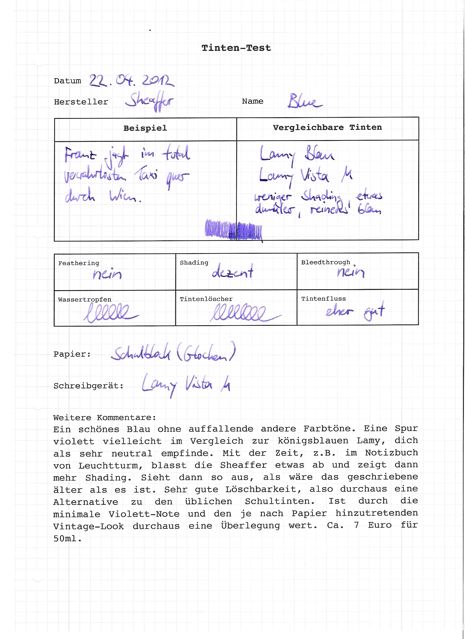 Tinten-Test
Datum 22.04.2012
Hersteller Sheaffer Name Blue
Beispiel
Franz jagt im total
verwahrlosten Taxi quer
durch Wien.
Vergleichbare Tinten
Lamy Blau
Lamy Vista M
weniger Shading, etwas
dunkler, reineres blau
Feathering
nein
Shading
dezent
Bleedthrough
nein
Wassertropfen
Tintenlöscher
Tintenfluss
eher gut
Papier: Schulblock (Glocken)
Schreibgerät: Lamy Vista M
Weitere Kommentare:
Ein schönes Blau ohne auffallende andere Farbtöne. Eine Spur
violett vielleicht im Vergleich zur königsblauen Lamy, dich
als sehr neutral empfinde. Mit der Zeit, z.B. im Notizbuch
von Leuchtturm, blasst die Sheaffer etwas ab und zeigt dann
mehr Shading. Sieht dann so aus, als wäre das geschriebene
älter als es ist. Sehr gute Löschbarkeit, also durchaus eine
Alternative zu den üblichen Schultinten. Ist durch die
minimale Violett-Note und den je nach Papier hinzutretenden
Vintage-Look durchaus eine Überlegung wert. Ca. 7 Euro für
50ml.